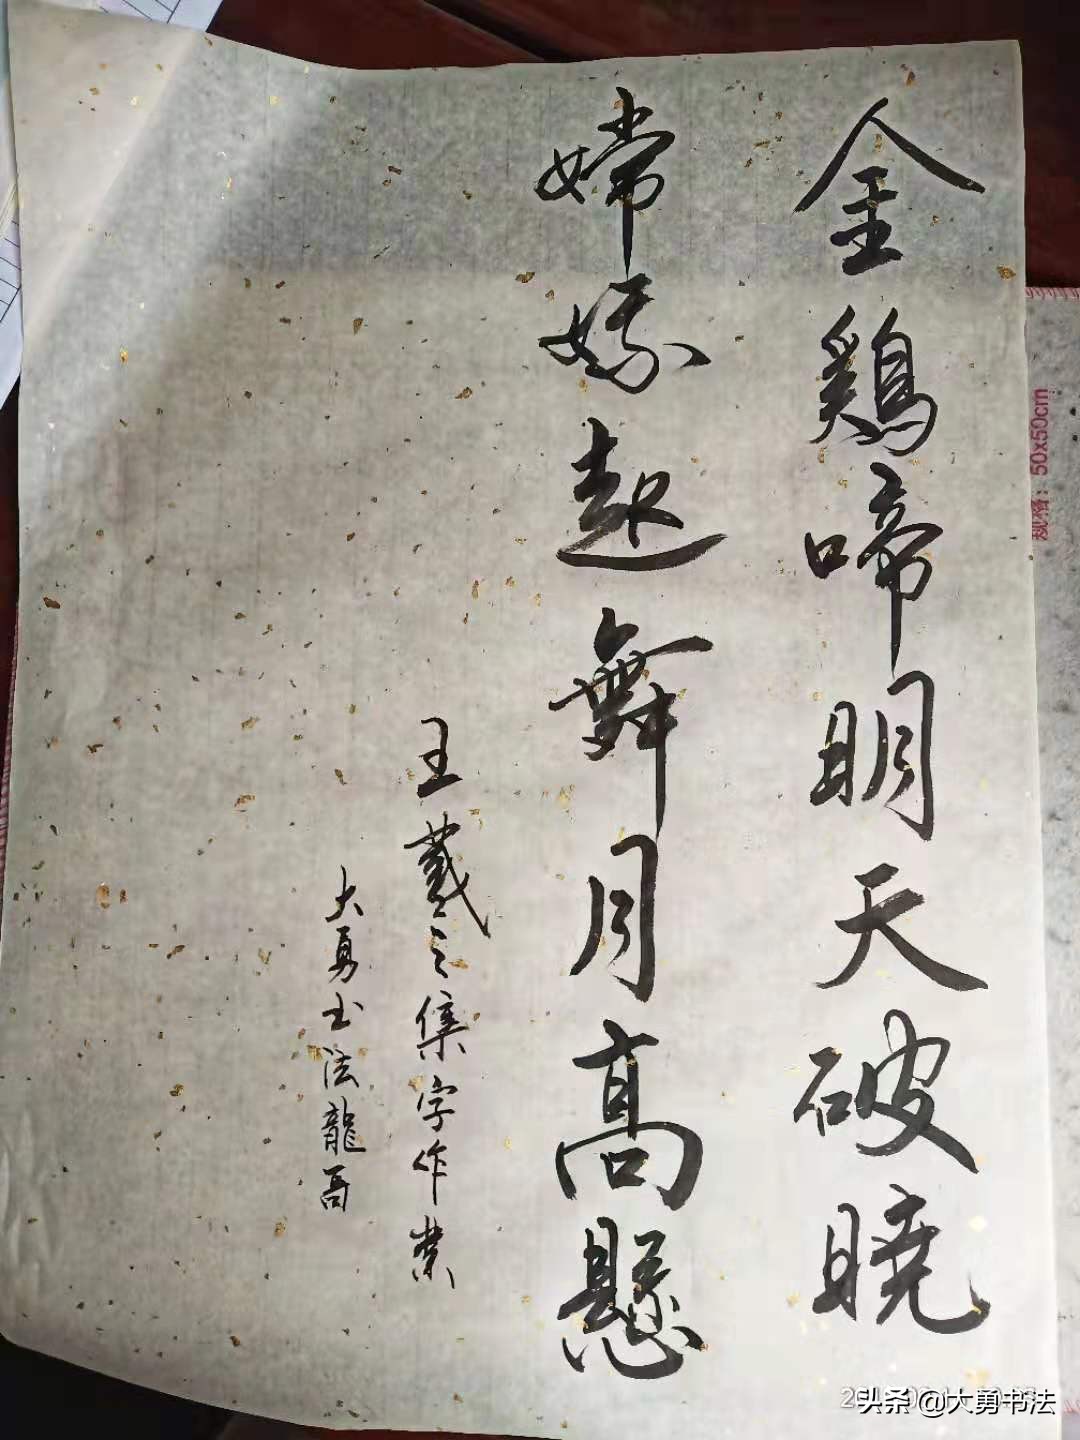 金鷄啼明天破曉
嫦娥起舞月高懸
王羲之集字作業
大勇书法龍哥
规格：50x50cm
头条@大勇书法